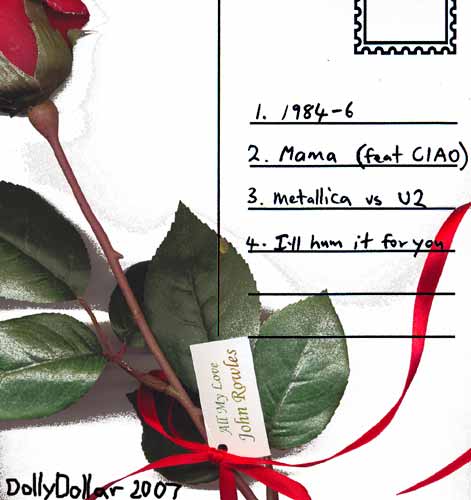 1. 1984-6
2. Mama (feat CIAO)
3. metallica vs U2
4. I'll hum it for you
All My Love
John Rowles
DollyDollar 2007